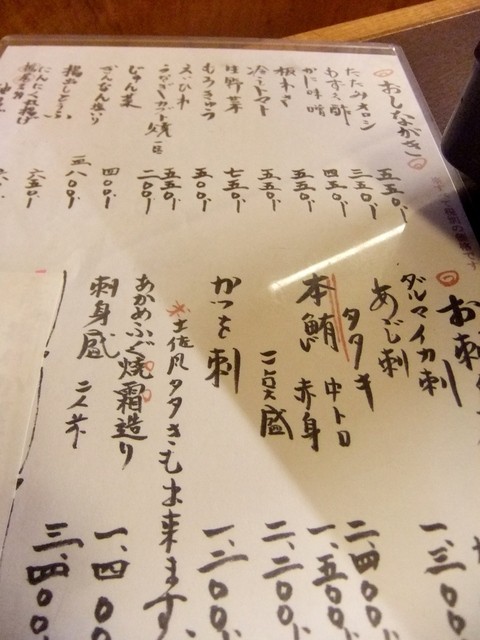 おしながき
たたみイワシ
五五〇
もずく酢
三五〇
かに味噌
四五〇
板わさ
五五〇
冷しトマト
五五〇
生野菜
七五〇
もろきゅう
五〇〇
えいひれ
五五〇
うなぎカブト焼
二〇〇
じゅん菜
ぎんなん塩り
四〇〇
揚出し
五八〇
にんにく丸揚げ
六五〇
お刺
ダルマイカ刺
一、三〇〇
あじ刺
タタキ
本鮪 中トロ
二、四〇〇
赤身
一、五〇〇
二点盛
二、二〇〇
かつを刺
一、二〇〇
土佐風タタきも出来ます
あかめふぐ焼霜造り
一、四〇〇
刺身盛 二人前
三、四〇〇